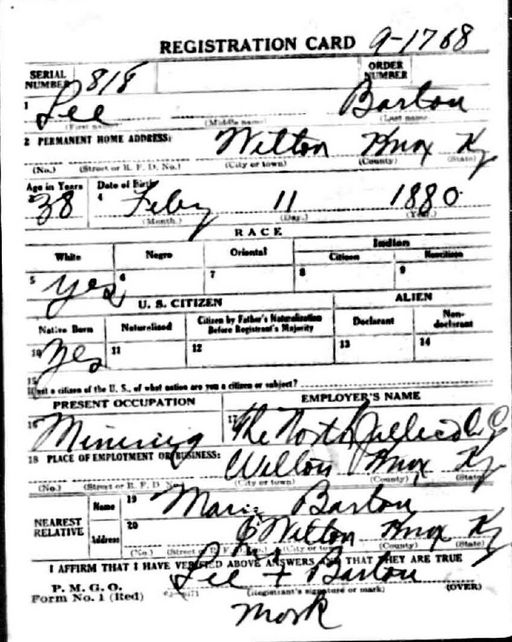 REGISTRATION CARD 9-1768
SERIAL NUMBER 818 ORDER NUMBER
1 Lee Barton
(First name) (Middle name) (Last name)
2 PERMANENT HOME ADDRESS: Wilton Knox Ky
(No.) (Street or R. F. D. No.) (City or town) (County) (State)
Age in Years Date of Birth
38 4 Feby 11 1880
(Month.) (Day.) (Year.)
RACE
White Negro Oriental Indian
Citizen Noncitizen
5 yes 6 7 8 9
U. S. CITIZEN ALIEN
Native Born Naturalized Citizen by Father's Naturalization Before Registrant's Majority Declarant Non-declarant
10 yes 11 12 13 14
15 If not a citizen of the U. S., of what nation are you a citizen or subject?
PRESENT OCCUPATION EMPLOYER'S NAME
16 Mining 17 The North Jellico
18 PLACE OF EMPLOYMENT OR BUSINESS:
Wilton Knox Ky
(No.) (Street or R. F. D. No.) (City or town) (County) (State)
NEAREST RELATIVE Name 19 Barton
Address 20 Wilton Knox Ky
(No.) (Street or R. F. D. No.) (City or town) (County) (State)
I AFFIRM THAT I HAVE VERIFIED ABOVE ANSWERS AND THAT THEY ARE TRUE
Lee + Barton
P. M. G. O.
Form No. 1 (Red) (Registrant's signature or mark) (OVER)
mark